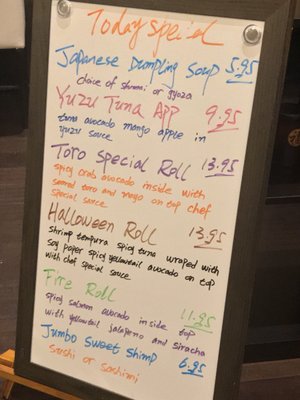 Today special
Japanese Dumpling Soup 5.95
choice of shumai or gyoza
Yuzu Tuna App 9.95
tuna avocado mango apple in
yuzu sauce
Toro Special Roll 13.95
spicy crab avocado inside with
seared toro and mayo on top chef
special sauce
Halloween Roll 13.95
shrimp tempura spicy tuna wraped with
soy paper spicy yellowtail avocado on top
with chef special sauce
Fire Roll 11.95
spicy salmon avocado inside top
with yellowtail jalapeno and siracha
Jumbo Sweet Shimp 6.95
sushi or sashimi